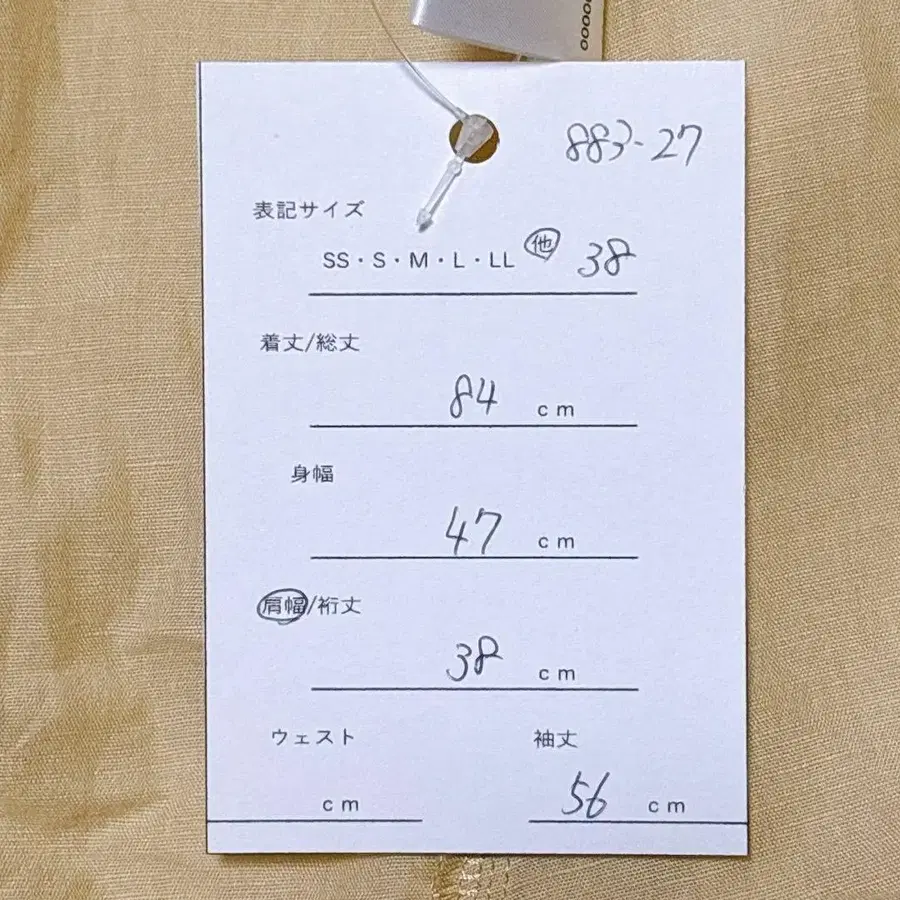 00000
883-27
表記サイズ
SS・S・M・L・LL 他 38
着丈/総丈
84 cm
身幅
47 cm
肩幅/裄丈
38 cm
ウェスト 袖丈
cm 56 cm